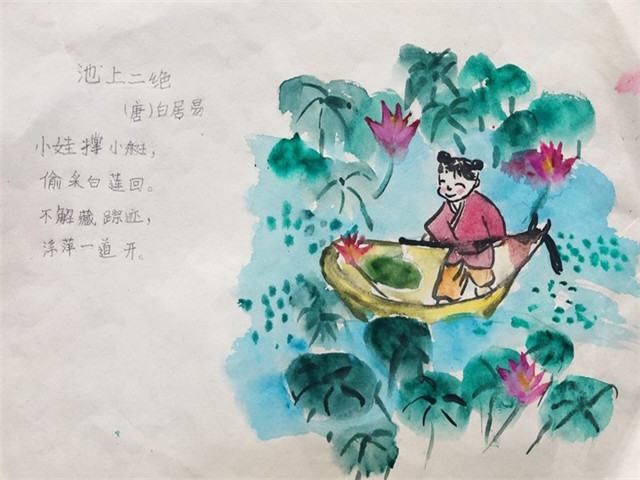 池上二绝
(唐)白居易
小娃撑小艇,
偷采白莲回。
不解藏踪迹,
浮萍一道开。